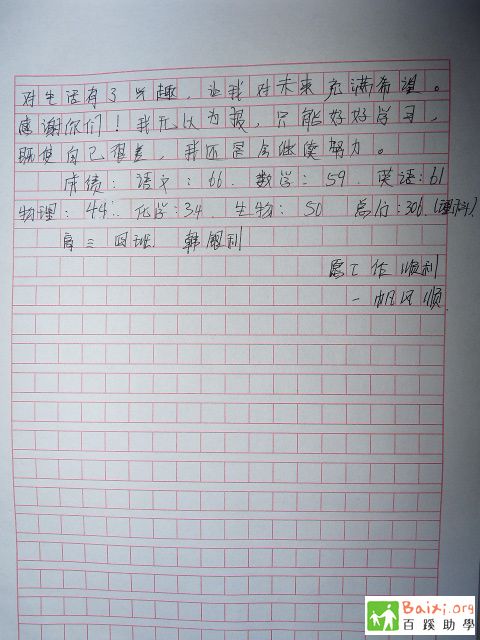 对生活有了兴趣，让我对未来充满希望。
感谢你们！我无以为报，只能好好学习，
既使自己很差，我还是会继续努力。
成绩：语文：66．数学：59．英语：61
物理：44．化学：34．生物：50 总分：306．(理科)
高三四班 韩俊利
愿工作顺利
一帆风顺．
Baixi.org
百蹊助學